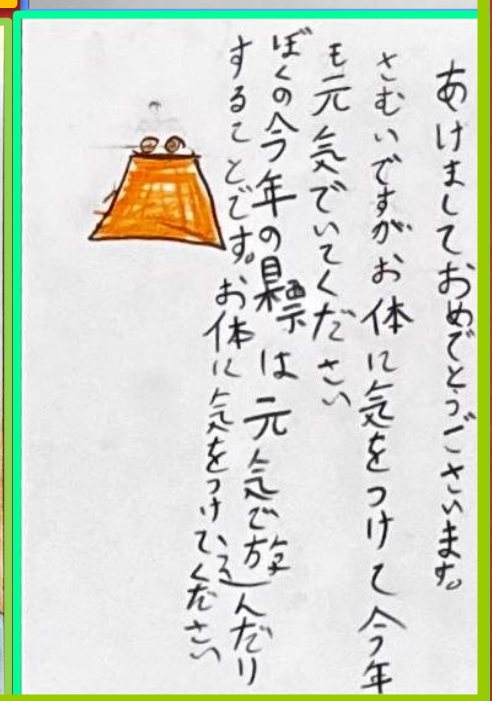 あけましておめでとうございます。
さむいですがお体に気をつけて今年
も元気でいてください
ぼくの今年の目標は元気で遊んだり
することです。お体に気をつけてください